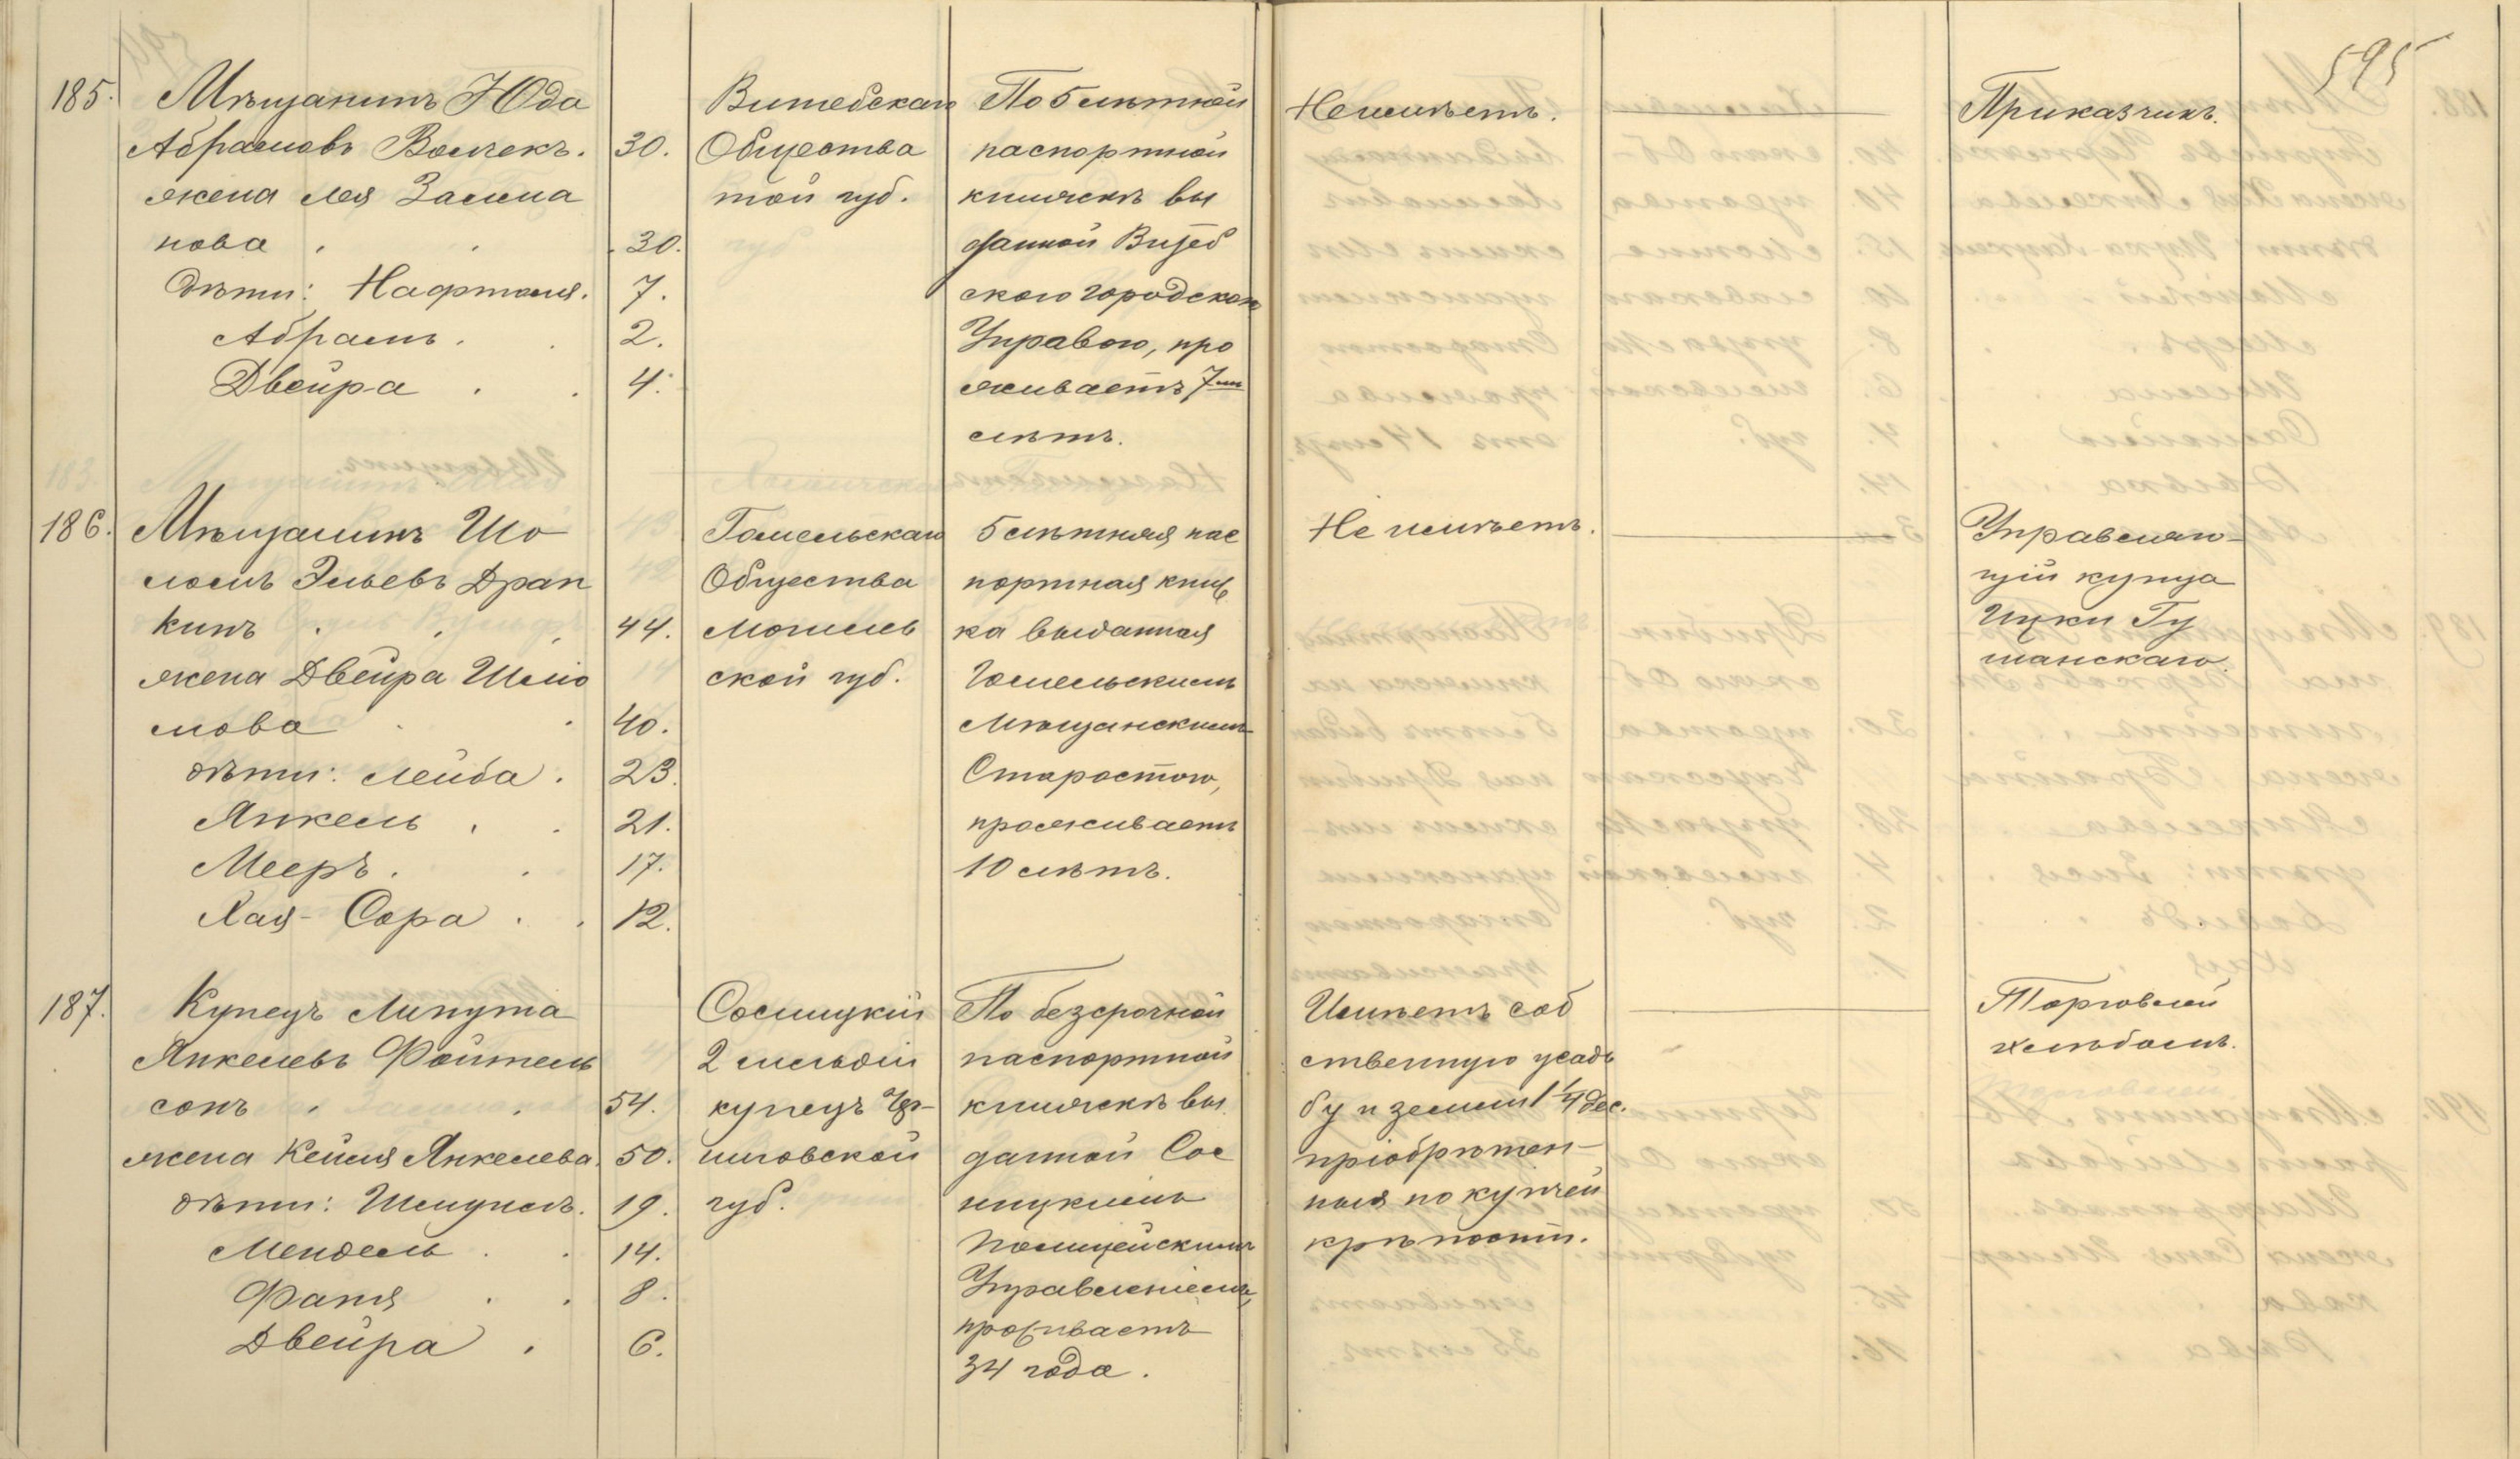 595
185. Мѣщанинъ Юда
Абрамовъ Волчекъ. 30.
жена Лея Залма
нова 30.
дѣти: Нафталя. 7.
Абрамъ. 2.
Двейра 4.
Витебскаго
Общества
той губ.
По 5 лѣтней
паспортной
книжкѣ вы
данной Витеб
скою городскою
Управою, про
живаетъ 7 ми
лѣтъ.
Не имѣетъ.
Приказчикъ.
186. Мѣщанинъ Шо
ломъ Эльевъ Драп
кинъ 44.
жена Двейра Шмо
лова 40.
дѣти: Лейба. 23.
Янкель 21.
Мееръ. 17.
Хая-Сора 12.
Гомельскаго
Общества
Могилев
ской губ.
5 лѣтняя пас
портная книж
ка выданная
Гомельскимъ
Мѣщанскимъ
Старостою,
проживаетъ
10 лѣтъ.
Не имѣетъ.
Управляю-
щій купца
Ицки Гу
манскаго.
187. Купецъ Липута
Янкелевъ Фойтель
сонъ 54.
жена Кейля Янкелева 50.
дѣти: Шмуилъ. 19.
Мендель 14.
Фаня 8.
Двейра 6.
Сосницкій
2 гильдіи
купецъ Чер-
ниговской
губ.
По безсрочной
паспортной
книжкѣ вы
данной Сос
ницкимъ
Полицейскимъ
Управленіемъ,
проживаетъ
34 года.
Имѣетъ соб
ственную усадь
бу и земли 1 1/4 дес.
пріобрѣтен-
ныя по купчей
крѣпости.
Торговлей
хлѣбомъ.